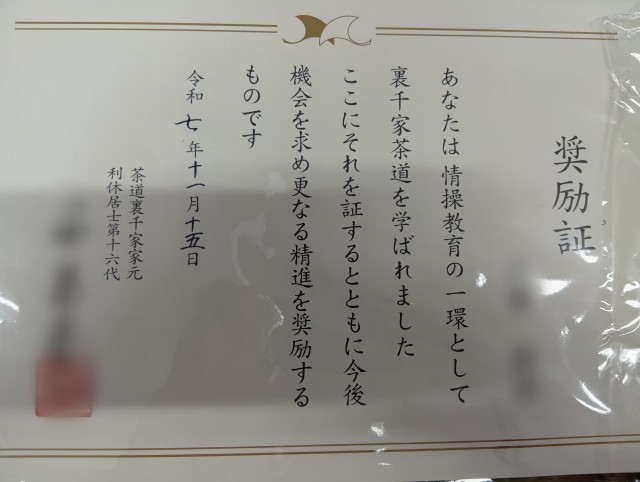 奨励証
あなたは情操教育の一環として
裏千家茶道を学ばれました
ここにそれを証するとともに今後
機会を求め更なる精進を奨励する
ものです
令和七年十一月十五日
茶道裏千家家元
利休居士第十六代